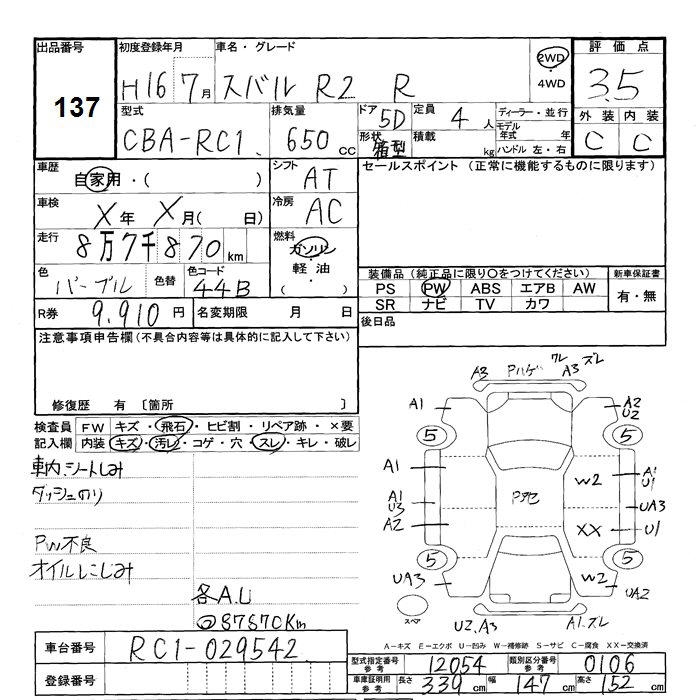 出品番号 初度登録年月 車名・グレード 2WD 評価点
137 H16 7月 スバル R2 R 4WD 3.5
型式 排気量 ドア 5D 定員 4人 ディーラー・並行 外装 内装
CBA-RC1 650cc 形状 箱型 積載 kg モデル年式 年 ハンドル 左・右 C C
車歴 自家用・( ) シフト AT セールスポイント(正常に機能するものに限ります)
車検 X年 X月( 日) 冷房 AC
走行 8万7千870km 燃料 ガソリン・軽油・( )
色 パープル 色替 色コード 44B 装備品(純正品に限り○をつけてください) 新車保証書
PS PW ABS エアB AW 有・無
SR ナビ TV カワ
R券 9.910円 名変期限 月 日 後日品
注意事項申告欄(不具合内容等は具体的に記入して下さい)
修復歴 有 〔箇所 〕
検査員記入欄 FW キズ・飛石・ヒビ割・リペア跡・×要
内装 キズ・汚レ・コゲ・穴・スレ・キレ・破レ
車内、シートしみ
ダッシュのり
PW不良
オイルにじみ
各A.U
◎87870Km
A3 Pハゲ ワレ A3 ズレ
A1 A2 U2
5 5
A1 W2 A1 U1
A1 U3 Pヤセ UA3
A2 XX U1
5 5
UA3 W2 UA2
スペア U2.A3 A1.ズレ
A-キズ E-エクボ U-凹み W-補修跡 S-サビ C-腐食 XX-交換済
車台番号 RC1-029542
登録番号
型式指定番号 参考 12054 類別区分番号 参考 0106
車庫証明用 参考 長さ 339cm 幅 147cm 高さ 152cm